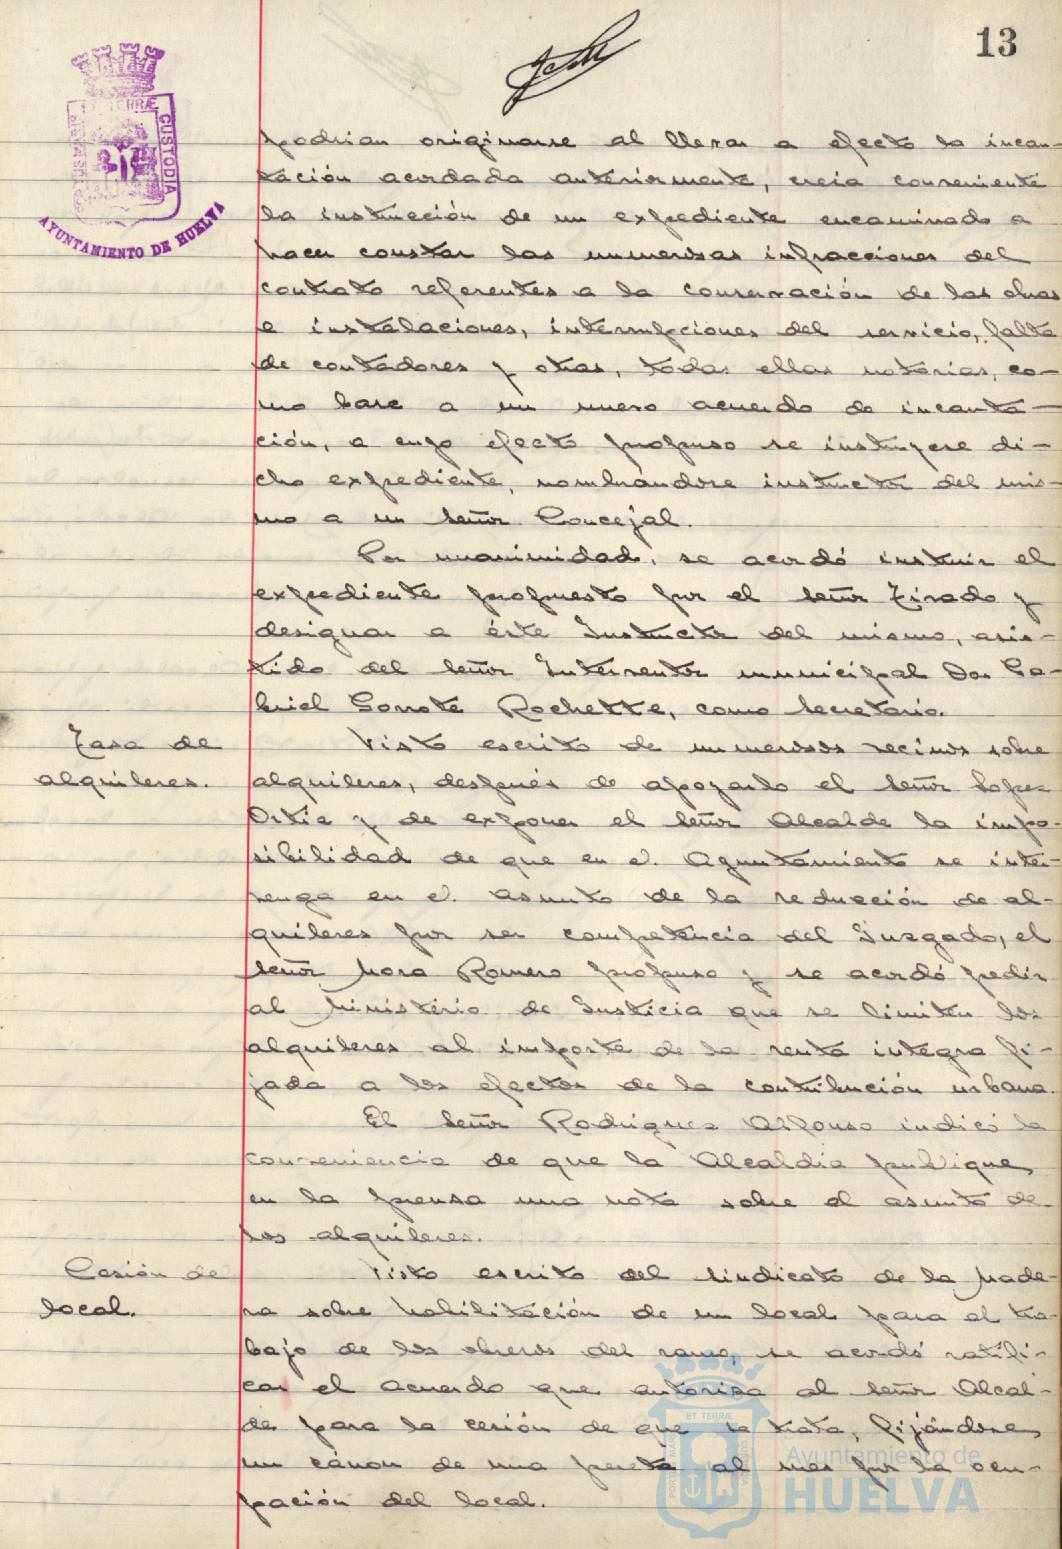 13
podrían originarse al llevar a efecto la incau-
tación acordada anteriormente, creía conveniente
la instrucción de un expediente encaminado a
hacer constar las numerosas infracciones del
contrato referentes a la conservación de las obras
e instalaciones, interrupciones del servicio, falta
de contadores y otras, todas ellas notorias, co-
mo base a un nuevo acuerdo de incauta-
ción, a cuyo efecto propuso se instruyese di-
cho expediente, nombrándose instructor del mis-
mo a un señor Concejal.
Por unanimidad, se acordó instruir el
expediente propuesto por el señor Tirado y
designar a éste Instructor del mismo, asis-
tido del señor Interventor municipal Don Ga-
briel Gorrote Rochette, como Secretario.
Tasa de
alquileres.
Visto escrito de numerosos vecinos sobre
alquileres, después de apoyarlo el señor López
Ortiz y de exponer el señor Alcalde la impo-
sibilidad de que en el Ayuntamiento se inter-
venga en el asunto de la reducción de al-
quileres por ser competencia del Juzgado, el
señor Mora Romero propuso y se acordó pedir
al Ministerio de Justicia que se limiten los
alquileres al importe de la renta íntegra fi-
jada a los efectos de la contribución urbana.
El señor Rodríguez Alfonso indicó la
conveniencia de que la Alcaldía publique
en la prensa una nota sobre el asunto de
los alquileres.
Cesión de
local.
Visto escrito del Sindicato de la Made-
ra sobre habilitación de un local para el tra-
bajo de los obreros del ramo, se acordó ratifi-
car el acuerdo que autoriza al señor Alcal-
de para la cesión de que se trata, fijándose
un cánon de una peseta al mes por la ocu-
pación del local.
ET TERRÆ CUSTODIA
AYUNTAMIENTO DE HUELVA
ET TERRÆ
Ayuntamiento de
HUELVA